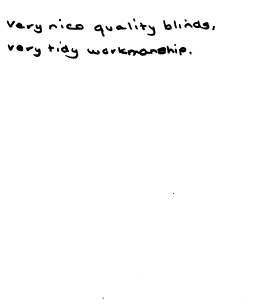 very nice quality blinds,
very tidy workmanship.